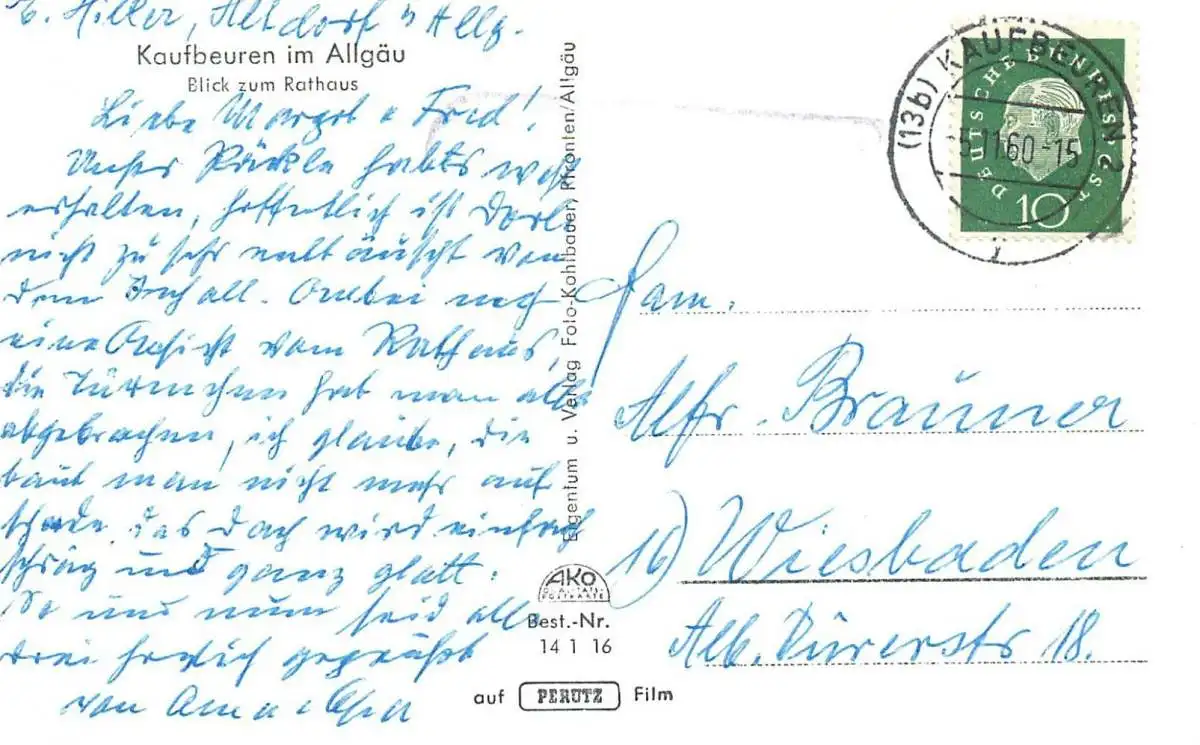 E. Hiller, Altdorf / Allg.
Kaufbeuren im Allgäu
Blick zum Rathaus
Liebe Margrl u Fred!
Unser Päckle habts wohl
erhalten, hoffentlich ist
nicht zu sehr enttäuscht von
dem Inhalt. Anbei noch
eine Ansicht vom Rathaus,
die Türmchen hat man alle
abgebrochen, ich glaube, die
baut man nicht mehr auf
schade. das Dach wird einfach
schräg und ganz glatt.
So und nun seid alle
drei herzlich gegrüßt
von
Eigentum u. Verlag Foto-Kohlbauer, Pfronten/Allgäu
AKO
QUALITÄTS-
POSTKARTE
Best.-Nr.
14 1 16
auf PERUTZ Film
(13b) KAUFBEUREN 2
5.11.60.-15
r
DEUTSCHE BUNDESPOST
10
Fam.
Alfr. Brauner
16) Wiesbaden
Alb. Dürerstr 18.